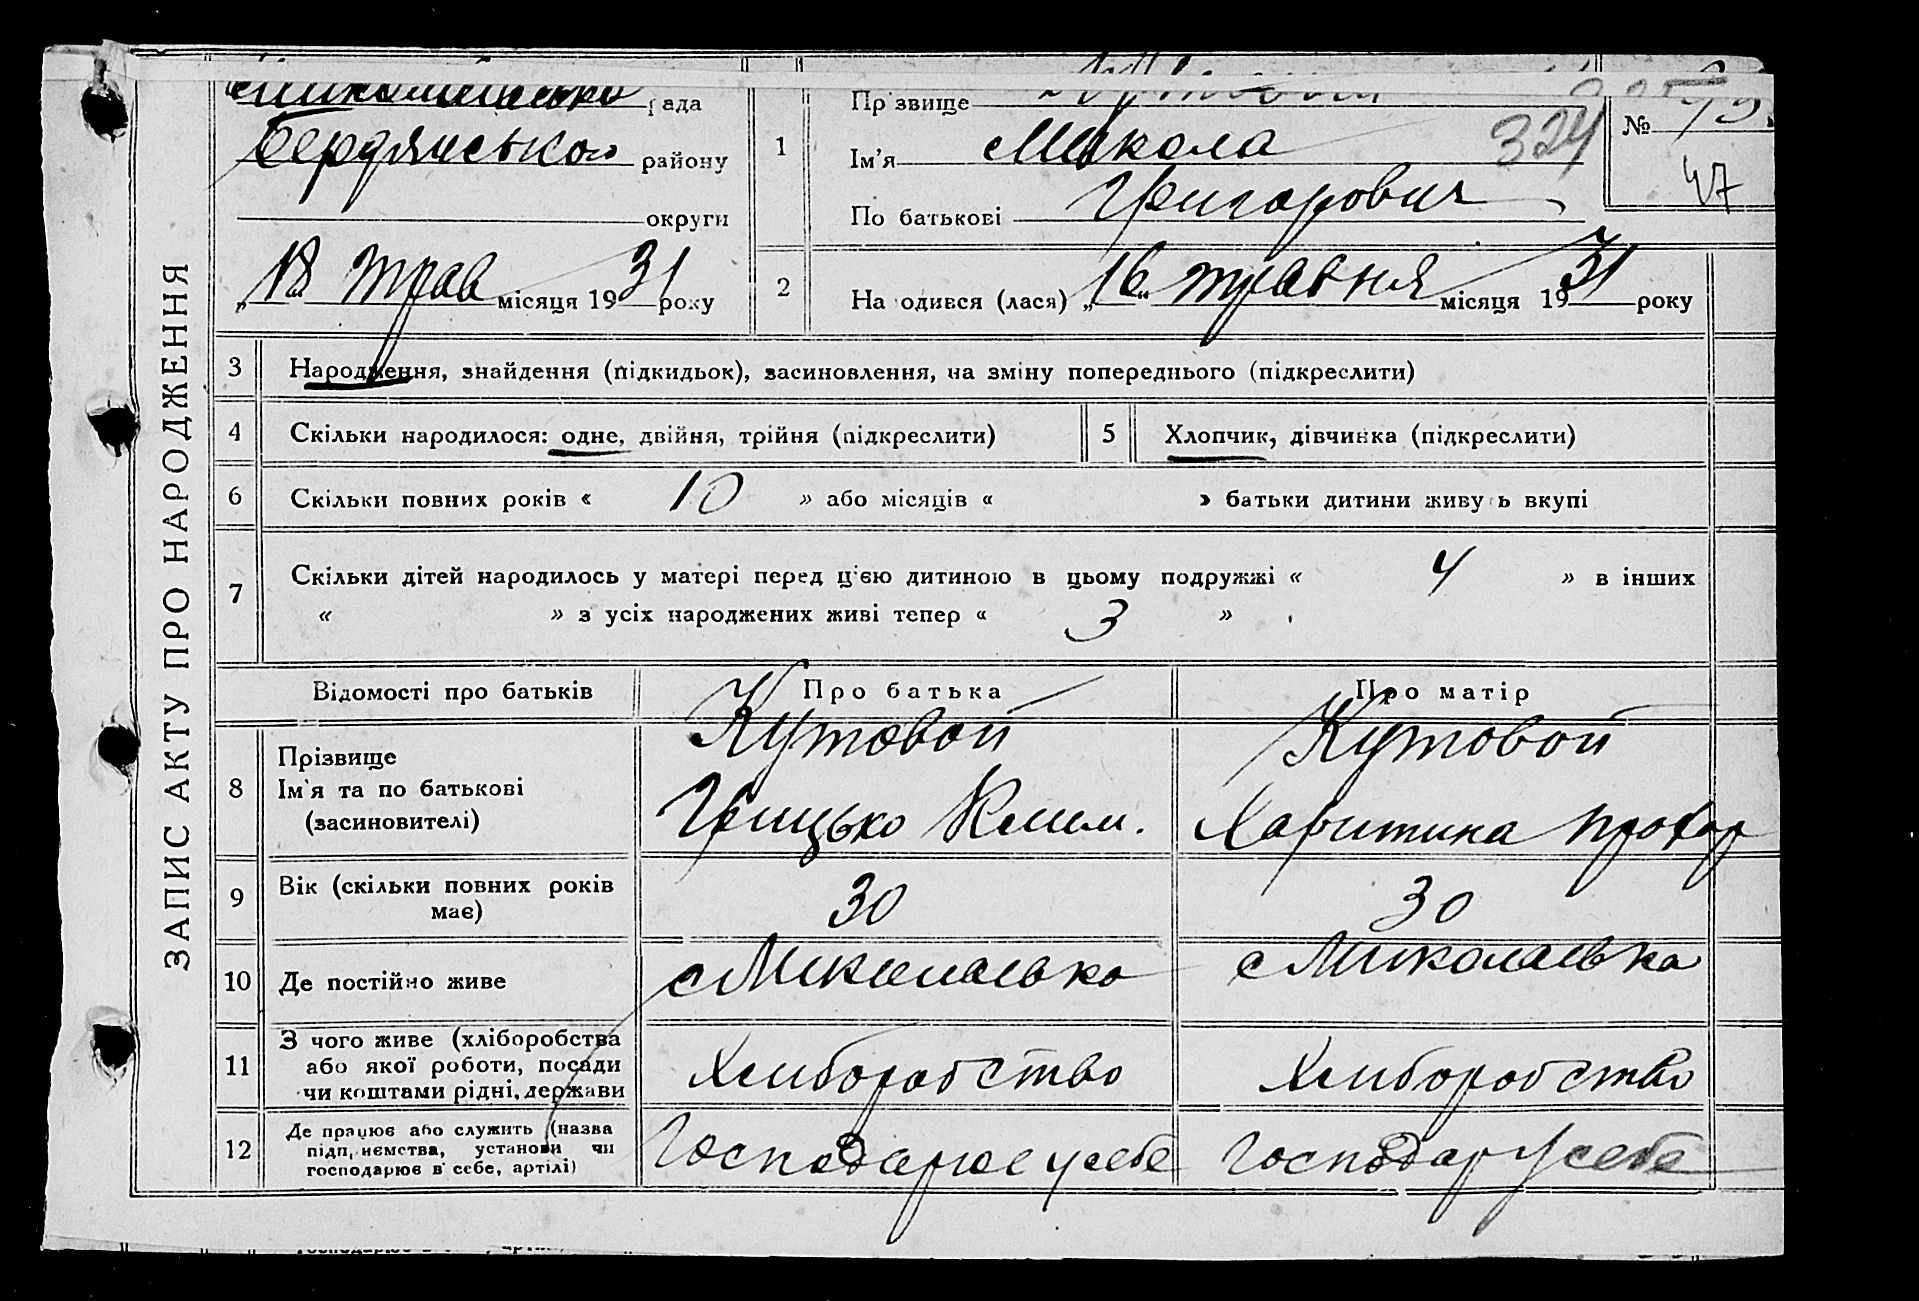 ЗАПИС АКТУ ПРО НАРОДЖЕННЯ
рада
Бердянського району
округи
„18 трав місяця 1931 року
1
Прізвище
Ім'я Микола
По батькові Григорович
324
№
47
2
На одився (лася) „16“ травня місяця 1931 року
3 Народження, знайдення (підкидьок), засиновлення, на зміну попереднього (підкреслити)
4 Скільки народилося: одне, двійня, трійня (підкреслити)
5 Хлопчик, дівчинка (підкреслити)
6 Скільки повних років « 10 » або місяців « » батьки дитини живу ь вкупі
7 Скільки дітей народилось у матері перед цією дитиною в цьому подружжі « 4 » в інших
« » з усіх народжених живі тепер « 3 »
Відомості про батьків Про батька Про матір
8 Прізвище
Ім'я та по батькові
(засиновителі)
Кутовой
Грицько Клим.
Кутовой
Харитина Прохор
9 Вік (скільки повних років
має)
30 30
10 Де постійно живе с Миколаевка с Миколаевка
11 З чого живе (хліборобства
або якої роботи, посади
чи коштами рідні, держави
Хлиборобство Хлиборобство
12 Де працює або служить (назва
підп, иємства, установи чи
господарює в себе, артілі)
Господарюе у себе Господар у себе